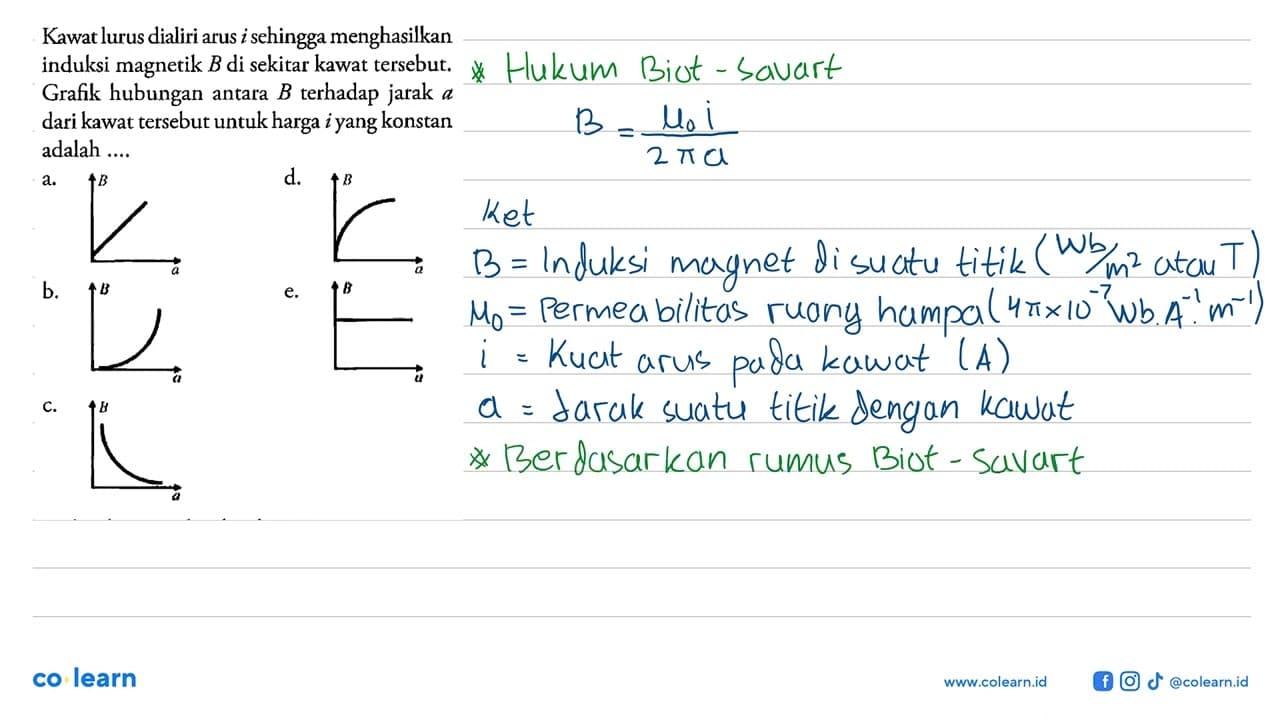 Kawat lurus dialiri arus i sehingga menghasilkan
induksi magnetik B di sekitar kawat tersebut.
Grafik hubungan antara B terhadap jarak a
dari kawat tersebut untuk harga i yang konstan
adalah ....
a. B a
b. B a
c. B a
d. B a
e. B a
* Hukum Biot - Savart
B = μ₀ i / 2 π a
Ket
B = Induksi magnet disuatu titik (Wb/m² atau T)
μ₀ = Permeabilitas ruang hampa (4π×10⁻⁷ Wb.A⁻¹.m⁻¹)
i = Kuat arus pada kawat (A)
a = Jarak suatu titik dengan kawat
* Berdasarkan rumus Biot - Savart
co learn
www.colearn.id
@colearn.id